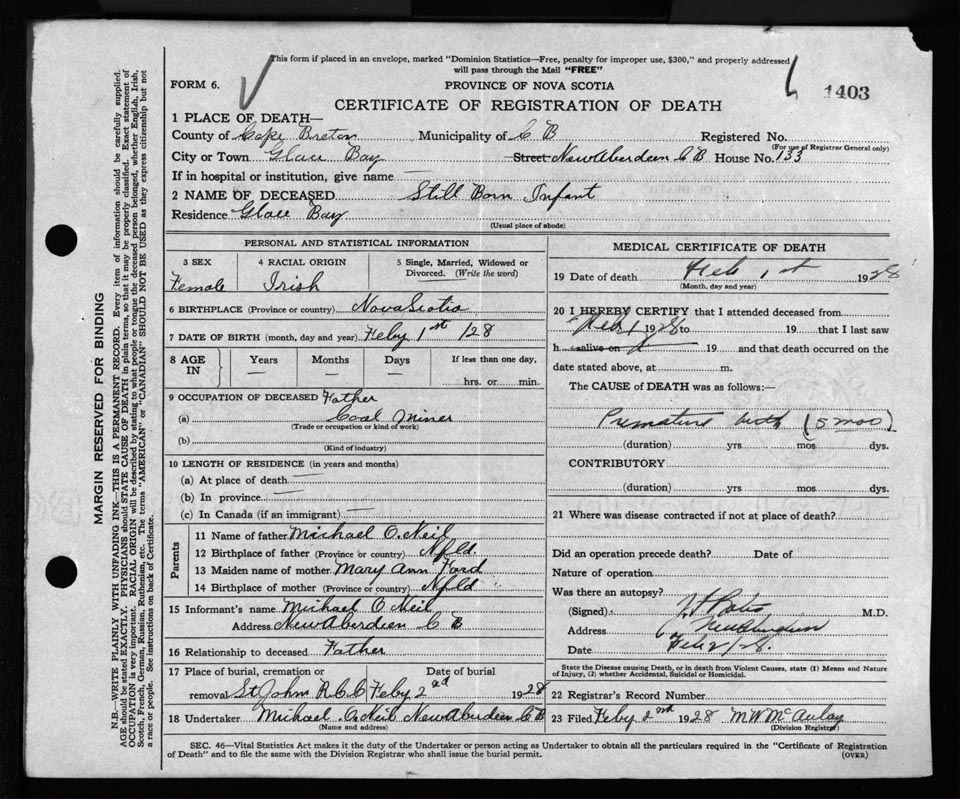 This form if placed in an envelope, marked "Dominion Statistics—Free, penalty for improper use, $300," and properly addressed
will pass through the Mail "FREE"
FORM 6.
PROVINCE OF NOVA SCOTIA
1403
CERTIFICATE OF REGISTRATION OF DEATH
1 PLACE OF DEATH—
County of Cape Breton Municipality of C B Registered No.
(For use of Registrar General only)
City or Town Glace Bay Street New Aberdeen C B House No. 133
If in hospital or institution, give name —
2 NAME OF DECEASED Still Born Infant
Residence Glace Bay
(Usual place of abode)
PERSONAL AND STATISTICAL INFORMATION
3 SEX
Female
4 RACIAL ORIGIN
Irish
5 Single, Married, Widowed or Divorced. (Write the word)
6 BIRTHPLACE (Province or country) Nova Scotia
7 DATE OF BIRTH (month, day and year) Feby 1st /28
8 AGE IN
Years Months Days If less than one day,
— — — hrs. or min.
9 OCCUPATION OF DECEASED Father
(a) Coal Miner
(Trade or occupation or kind of work)
(b)
(Kind of industry)
10 LENGTH OF RESIDENCE (in years and months)
(a) At place of death —
(b) In province —
(c) In Canada (if an immigrant) —
Parents
11 Name of father Michael O.Neil
12 Birthplace of father (Province or country) Nfld.
13 Maiden name of mother Mary Ann Ford
14 Birthplace of mother (Province or country) Nfld
15 Informant's name Michael O Neil
Address New Aberdeen C B
16 Relationship to deceased Father
17 Place of burial, cremation or Date of burial
removal St Johns R.C.C Feby 2nd 1928
18 Undertaker Michael O.Neil New Aberdeen C B
(Name and address)
MEDICAL CERTIFICATE OF DEATH
19 Date of death Feb 1st 1928
(Month, day and year)
20 I HEREBY CERTIFY that I attended deceased from
Feb 1 1928 to 19 that I last saw
h alive on 19 and that death occurred on the
date stated above, at m.
The CAUSE of DEATH was as follows:
Premature birth (5 mos)
(duration) yrs mos dys.
CONTRIBUTORY
(duration) yrs mos dys.
21 Where was disease contracted if not at place of death?
Did an operation precede death? Date of
Nature of operation
Was there an autopsy?
(Signed) M.D.
Address New Aberdeen
Date Feb 2/28.
State the Disease causing Death, or in death from Violent Causes, state (1) Means and Nature
of Injury, (2) whether Accidental, Suicidal or Homicidal.
22 Registrar's Record Number
23 Filed Feby 2nd 1928 M W McAulay
(Division Registrar)
SEC. 46—Vital Statistics Act makes it the duty of the Undertaker or person acting as Undertaker to obtain all the particulars required in the "Certificate of Registration
of Death" and to file the same with the Division Registrar who shall issue the burial permit.
(OVER)
MARGIN RESERVED FOR BINDING
N.B.—WRITE PLAINLY WITH UNFADING INK—THIS IS A PERMANENT RECORD. Every item of information should be carefully supplied.
AGE should be stated EXACTLY. PHYSICIANS should STATE CAUSE OF DEATH in plain terms, so that it may be properly classified. Exact statement of
OCCUPATION is very important. RACIAL ORIGIN will be described by stating to what people or tongue the deceased person belonged, whether English, Irish,
Scotch, French, German, Russian, Ruthenian, etc. The terms "AMERICAN" or "CANADIAN" SHOULD NOT BE USED as they express citizenship but not
a race or people. See instructions on back of Certificate.